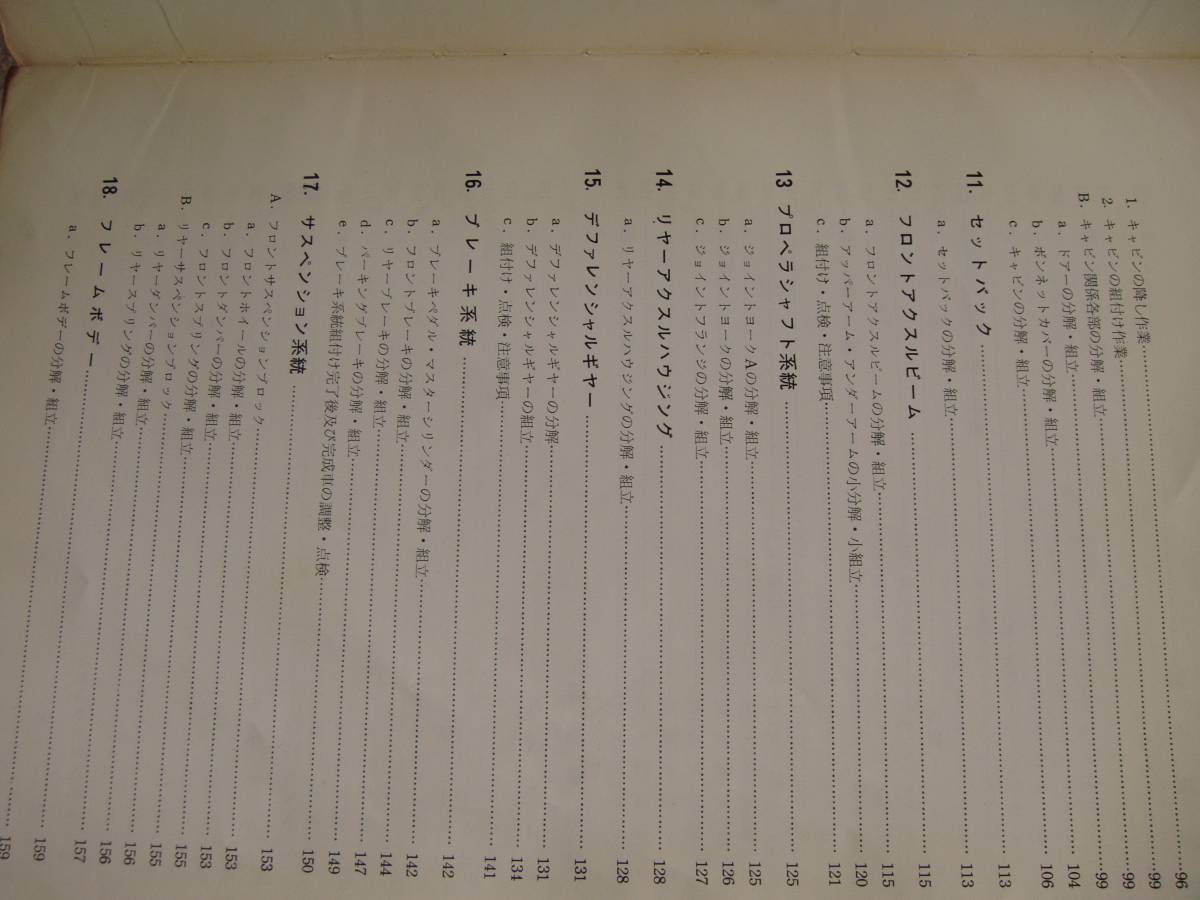 1. キャビンの降し作業……96
2. キャビンの組付け作業……99
B. キャビン関係各部の分解・組立……99
a. ドアーの分解・組立……99
b. ボンネットカバーの分解・組立……104
c. キャビンの分解・組立……106
11. セットバック……113
a. セットバックの分解・組立……113
12. フロントアクスルビーム……115
a. フロントアクスルビームの分解・組立……115
b. アッパーアーム・アンダーアームの小分解・小組立……120
c. 組付け・点検・注意事項……121
13 プロペラシャフト系統……125
a. ジョイントヨークAの分解・組立……125
b. ジョイントヨークの分解・組立……126
c. ジョイントフランジの分解・組立……127
14. リヤーアクスルハウジング……128
a. リヤーアクスルハウジングの分解・組立……128
15. デファレンシャルギヤー……131
a. デファレンシャルギヤーの分解……131
b. デファレンシャルギヤーの組立……134
c. 組付け・点検・注意事項……141
16. ブレーキ系統……142
a. ブレーキペダル・マスターシリンダーの分解・組立……142
b. フロントブレーキの分解・組立……144
c. リヤーブレーキの分解・組立……147
d. パーキングブレーキの分解・組立……149
e. ブレーキ系統組付け完了後及び完成車の調整・点検……150
17. サスペンション系統……153
A. フロントサスペンションブロック……153
a. フロントホイールの分解・組立……153
b. フロントダンパーの分解・組立……155
c. フロントスプリングの分解・組立……155
B. リヤーサスペンションブロック……156
a. リヤーダンパーの分解・組立……156
b. リヤースプリングの分解・組立……157
18. フレームボデー……159
a. フレームボデーの分解・組立……159